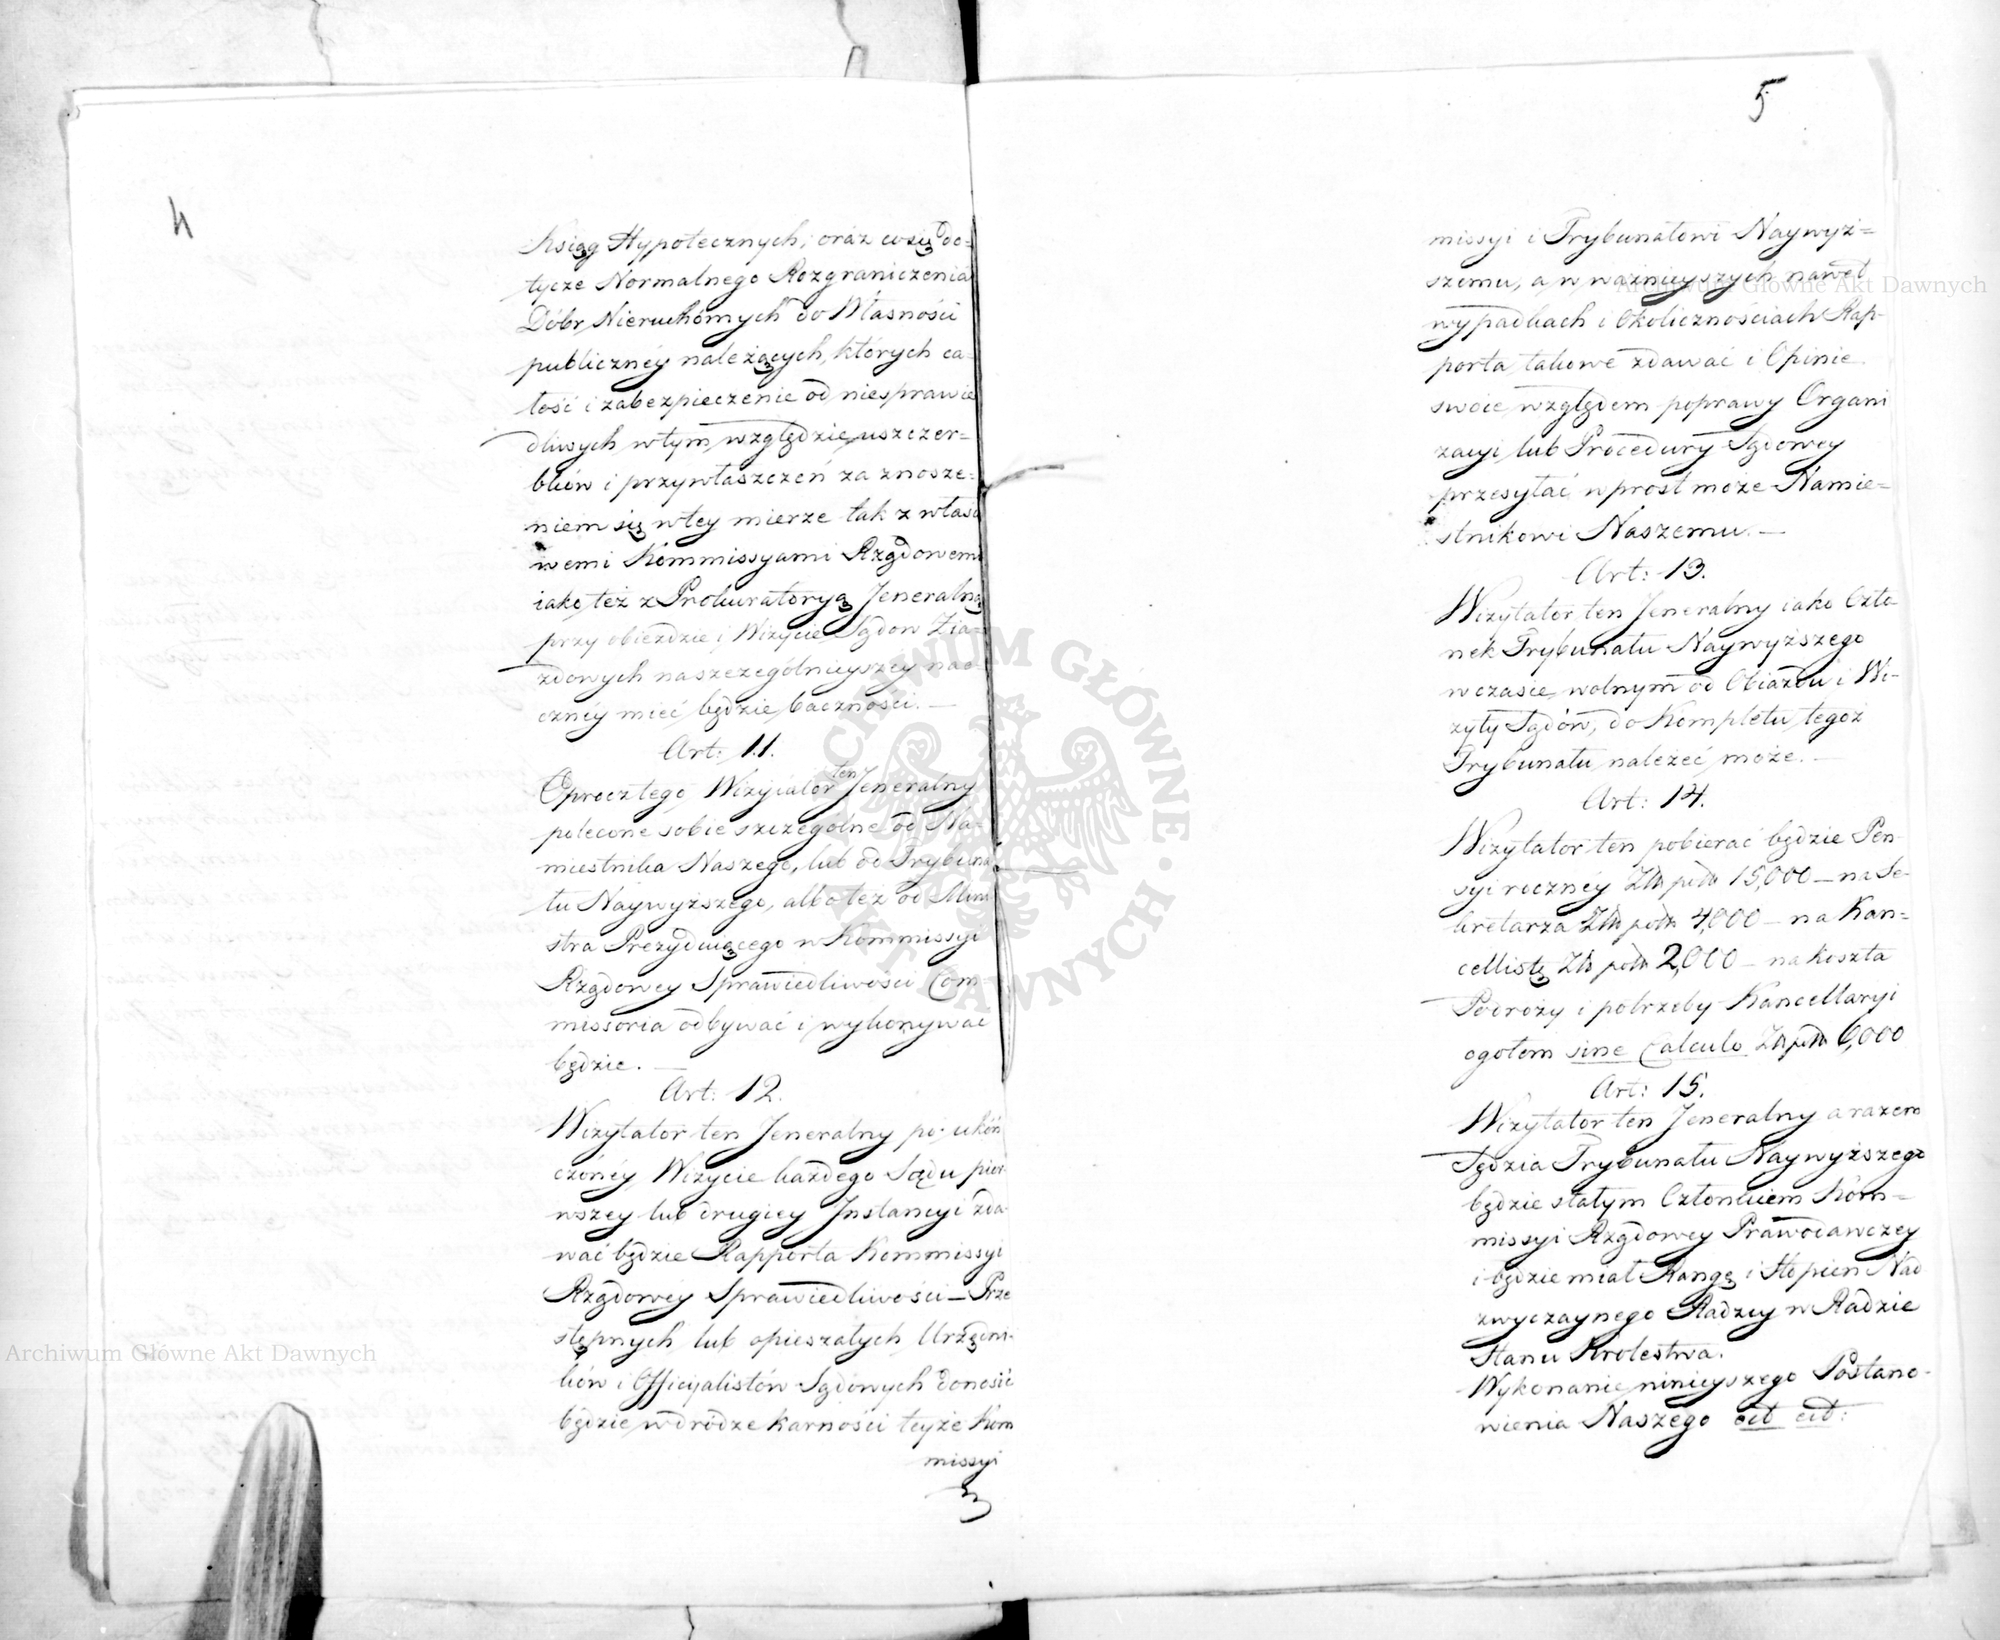 4
Ksiąg Hypotecznych, oraz co się do=
tycze Normalnego Rozgraniczenia
Dóbr Nieruchómych do Własności
publicznéy należących, których ca-
łość i zabezpieczenie od niesprawie
dliwych w tym względzie uszczer=
bków i przywłaszczeń za znosze=
niem się w tey mierze tak z właści
wemi Kommissyami Rządowemi
iako też z Prokuratoryą Jeneralną
przy obieździe i Wizycie Sądow Zia=
zdowych naszczególnieyszey nao-
cznéy mieć będzie baczności. —
Art: 11.
Oprocz tego Wizyiator ten Jeneralny
polecone sobie szczególne od Na=
miestnika Naszego, lub od Trybuna
łu Naywyższego, albo też od Mini
stra Prezyduiącego w Kommissyi
Rządowey Sprawiedliwości Com-
missoria odbywać i wykonywać
będzie. —
Art: 12.
Wizytator ten Jeneralny po ukóń
czónéy Wizycie każdego Sądu pier
wszey lub drugiey Instancyi zda
wać będzie Rapporta Kommissyi
Rządowéy Sprawiedliwości — Prze
stępnych lub opieszałych Urzędni-
ków i Officyalistów Sądówych donosić
będzie w drodze karności teyże Kom
missyi
5
missyi i Trybunałowi Naywyż=
szemu, a w ważnieyszych nawet
wypadkach i Okolicznościach Rap-
porta takowe zdawać i Opinie
swoie względem poprawy Organi
zacyi lub Procedury Sądowey
przesyłać wprost może Namie=
stnikowi Naszemu. —
Art: 13.
Wizytator ten Jeneralny iako Czło
nek Trybunału Naywyższego
w czasie wolnym od Obiazdu i Wi-
zyty Sądów, do Kompletu tegoż
Trybunału należeć może. —
Art: 14.
Wizytator ten pobierać będzie Pen
syi rocznéy Złł polł 15,000 — na Se-
kretarza Złł polł 4,000 — na Kan=
cellistę Złł polł 2,000 — na koszta
Podroży i potrzeby Kancellaryi
ogołem sine Calculo Złł polł 6,000
Art: 15.
Wizytator ten Jeneralny a razem
Sędzia Trybunału Naywyższego
będzie stałym Członkiem Kom=
missyi Rządowey Prawodawczey
i będzie miał Rangę i Stopień Nad
zwyczaynego Radzcy w Radzie
Stanu Krolestwa.
Wykonanie ninieyszego Postano-
wienia Naszego ett ett:
Archiwum Główne Akt Dawnych
Archiwum Główne Akt Dawnych
ARCHIWUM GŁÓWNE • AKT DAWNYCH